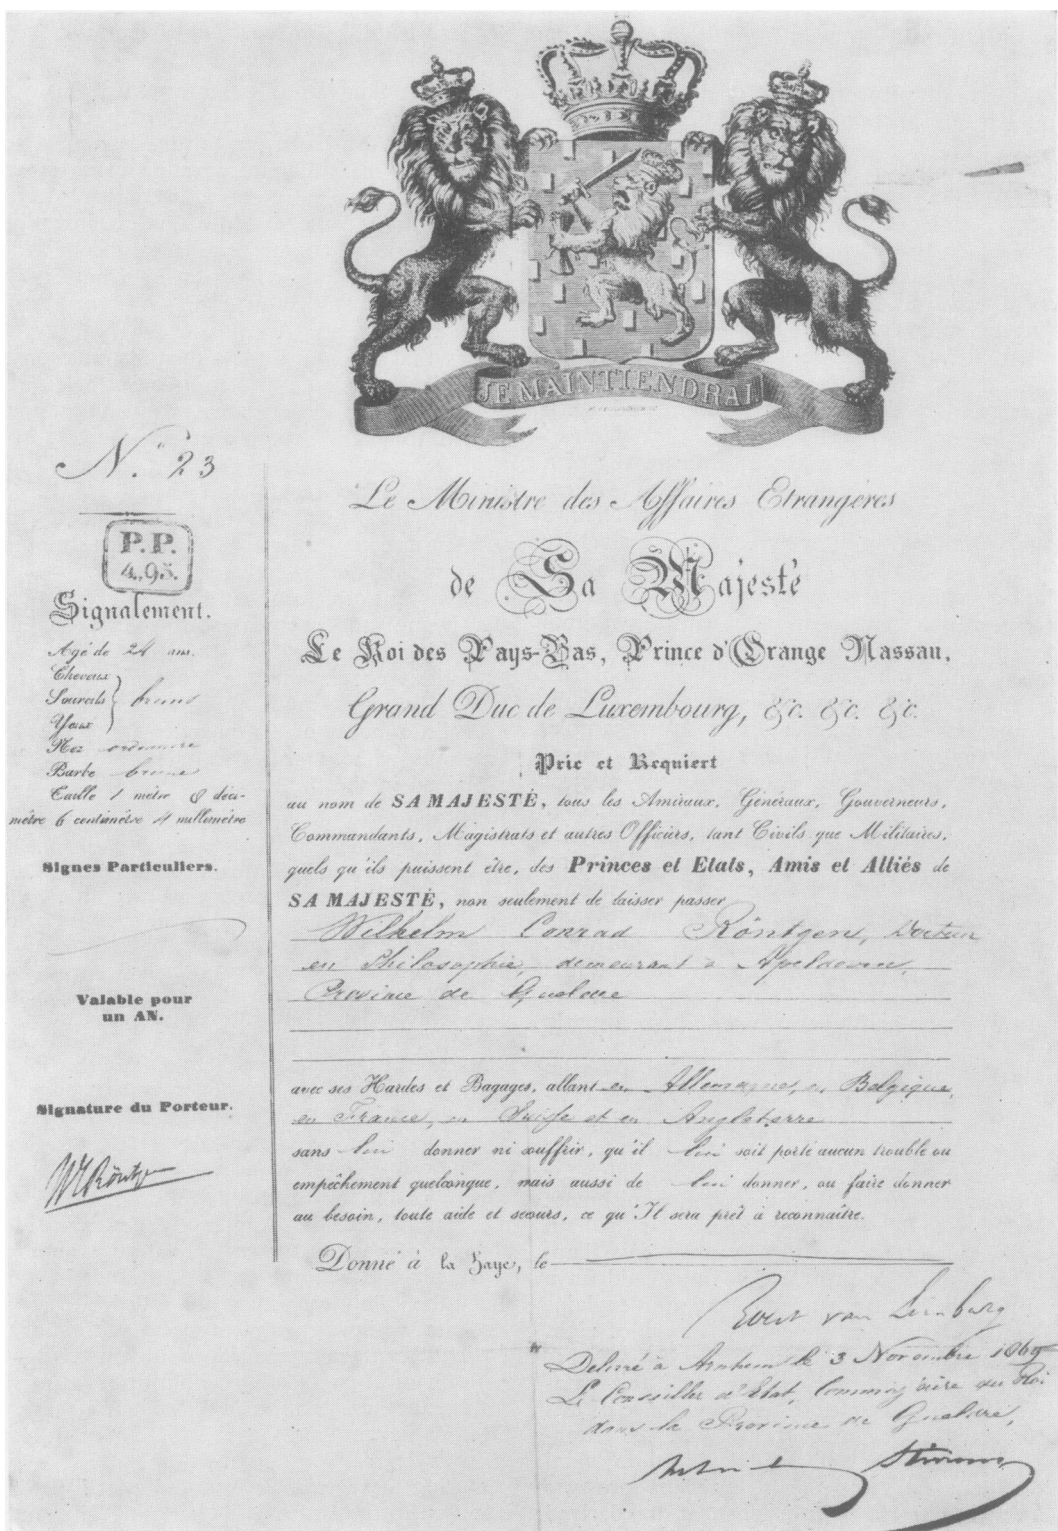 JE MAINTIENDRAI
N.° 23
P.P.
4,95.
Signalement.
Agé de 24 ans.
Cheveux
Sourcils bruns
Yeux
Nez ordinaire
Barbe brune
Taille 1 mètre 8 déci-
mètre 6 centimètre 4 millimètre
Signes Particuliers.
Valable pour
un AN.
Signature du Porteur.
WCRöntgen
Le Ministre des Affaires Etrangères
de Sa Majesté
Le Roi des Pays-Bas, Prince d'Orange Nassau,
Grand Duc de Luxembourg, &c. &c. &c.
Prie et Requiert
au nom de SA MAJESTÉ, tous les Amiraux, Généraux, Gouverneurs,
Commandants, Magistrats et autres Officiers, tant Civils que Militaires,
quels qu'ils puissent être, des Princes et Etats, Amis et Alliés de
SA MAJESTÉ, non seulement de laisser passer
Wilhelm Conrad Röntgen, Docteur
en Philosophie, demeurant à Apeldoorn,
Province de Gueldre
avec ses Hardes et Bagages, allant en Allemagne, en Belgique,
en France, en Suisse et en Angleterre
sans lui donner ni souffrir, qu'il lui soit porté aucun trouble ou
empêchement quelconque, mais aussi de lui donner, ou faire donner
au besoin, toute aide et secours, ce qu'Il sera prêt à reconnaître.
Donné à la Haye, le
van Limburg
Delivré à Arnhem le 3 Novembre 1869
Le Conseiller d'Etat, Commissaire du Roi
dans la Province de Gueldre,